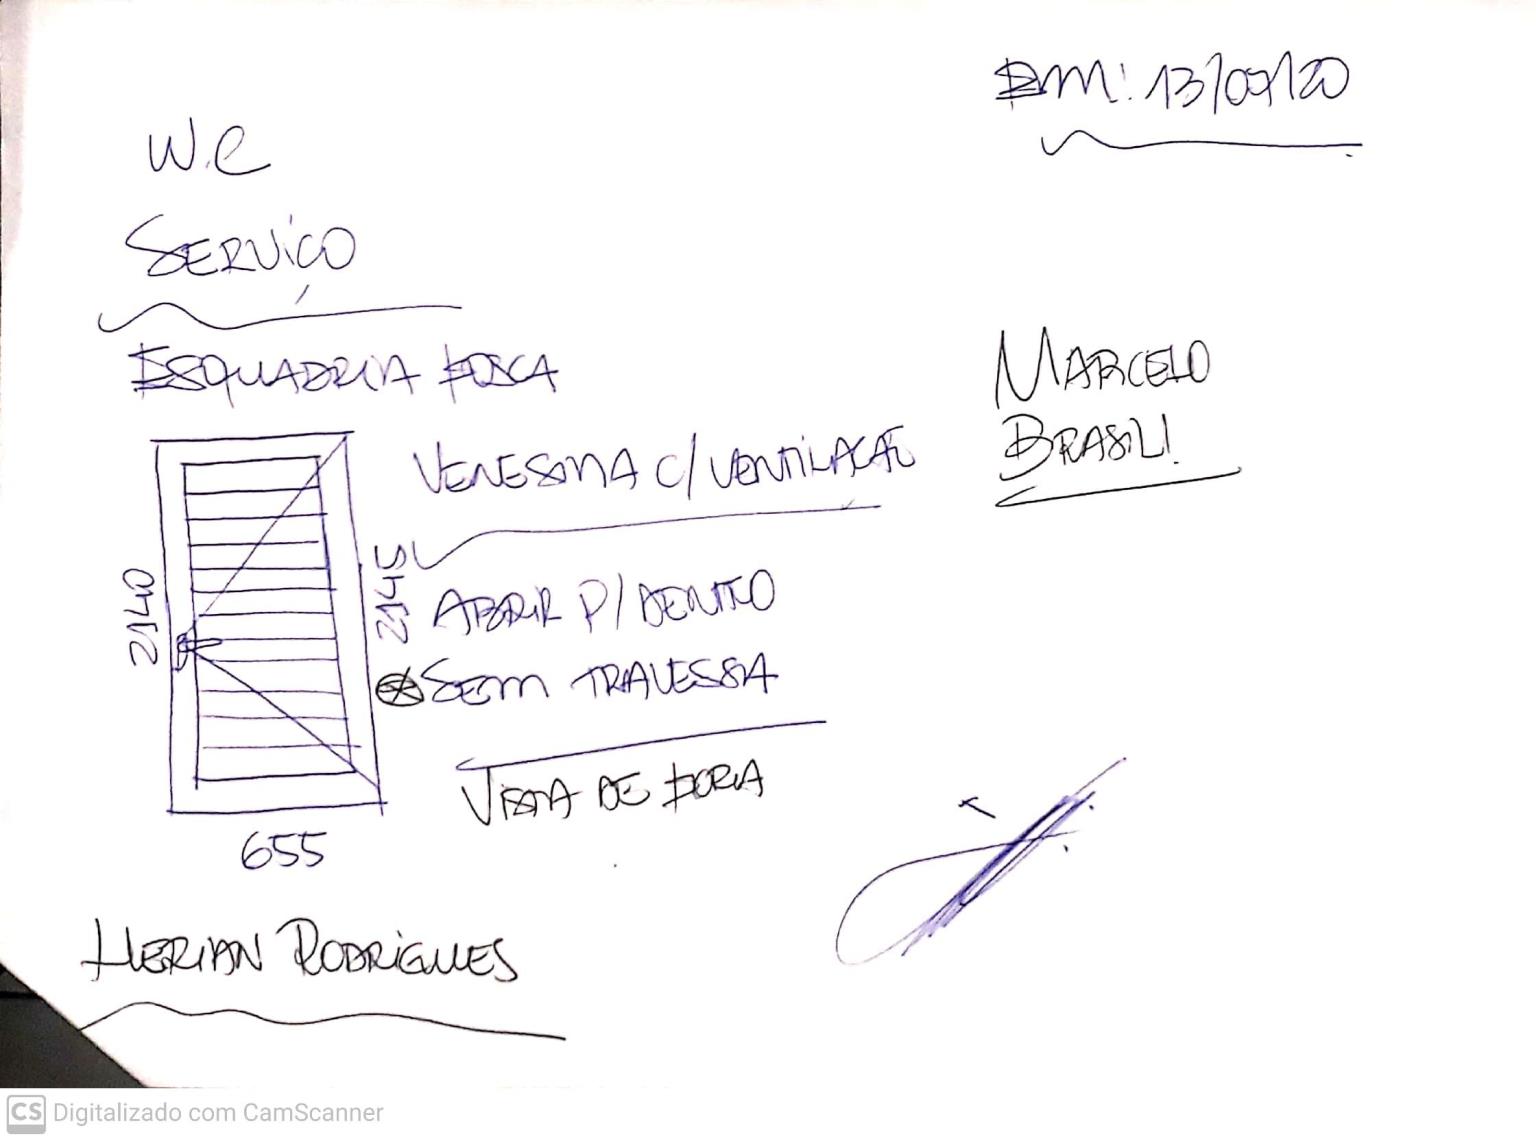 EM: 13/07/20
W.C
SERVIÇO
ESQUADRIA FOSCA
MARCELO
BRASIL!
VENESIANA C/ VENTILAÇÃO
2140
2145
ABRIR P/ DENTRO
SEM TRAVESSA
VISTA DE FORA
655
HERIAN RODRIGUES
CS Digitalizado com CamScanner